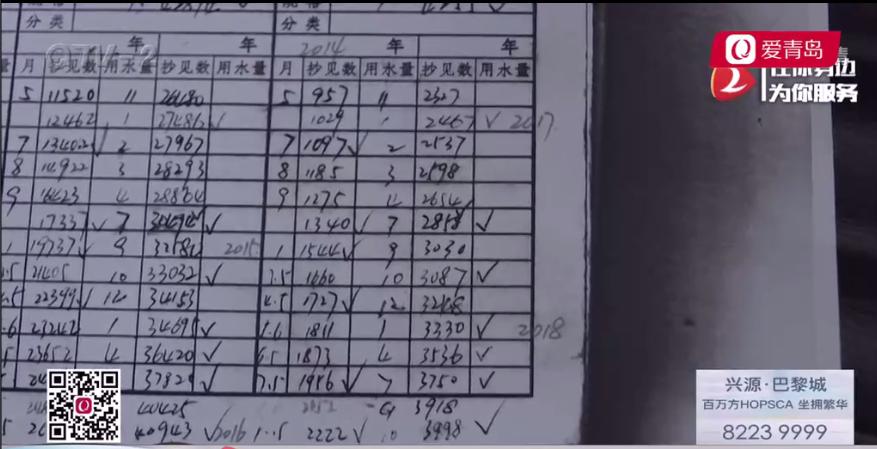 分类
分类
年 年 2014 年 年
月 抄见数 用水量 抄见数 用水量 月 抄见数 用水量 抄见数 用水量
5 11520 11 26180 5 957 11 2327
12462 1 27486 ✓ 1029 1 2467 ✓ 2017
7 13402 ✓ 2 27967 7 1097 ✓ 2 2537
8 14922 3 28293 8 1185 3 2598
9 16423 4 28864 9 1275 4 2654
17337 ✓ 7 ✓ 1340 ✓ 7 2858 ✓
1 19737 ✓ 9 2015 1 1544 ✓ 9 3030
21405 10 33032 ✓ 1.5 1660 10 3087 ✓
22399 ✓ 12 34153 4.5 1727 ✓ 12
23242 1 34695 ✓ 1811 1 3330 ✓ 2018
23652 4 36420 ✓ 6.5 1873 4 3536 ✓
37829 ✓ 7.5 1986 ✓ 7 3750 ✓
40425 3918
40943 ✓ 2016 2222 ✓ 10 3998 ✓
爱青岛
在你身边
为你服务
兴源·巴黎城
百万方HOPSCA 坐拥繁华
8223 9999